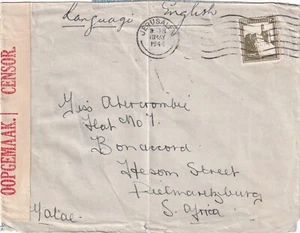 Language English
JERUSALEM
MAY
OOPGEMAAK. CENSOR.
Miss Abercrombie
Flat No 7.
Bonaccord
Hesom Street
Pietmaritzburg
S. Africa